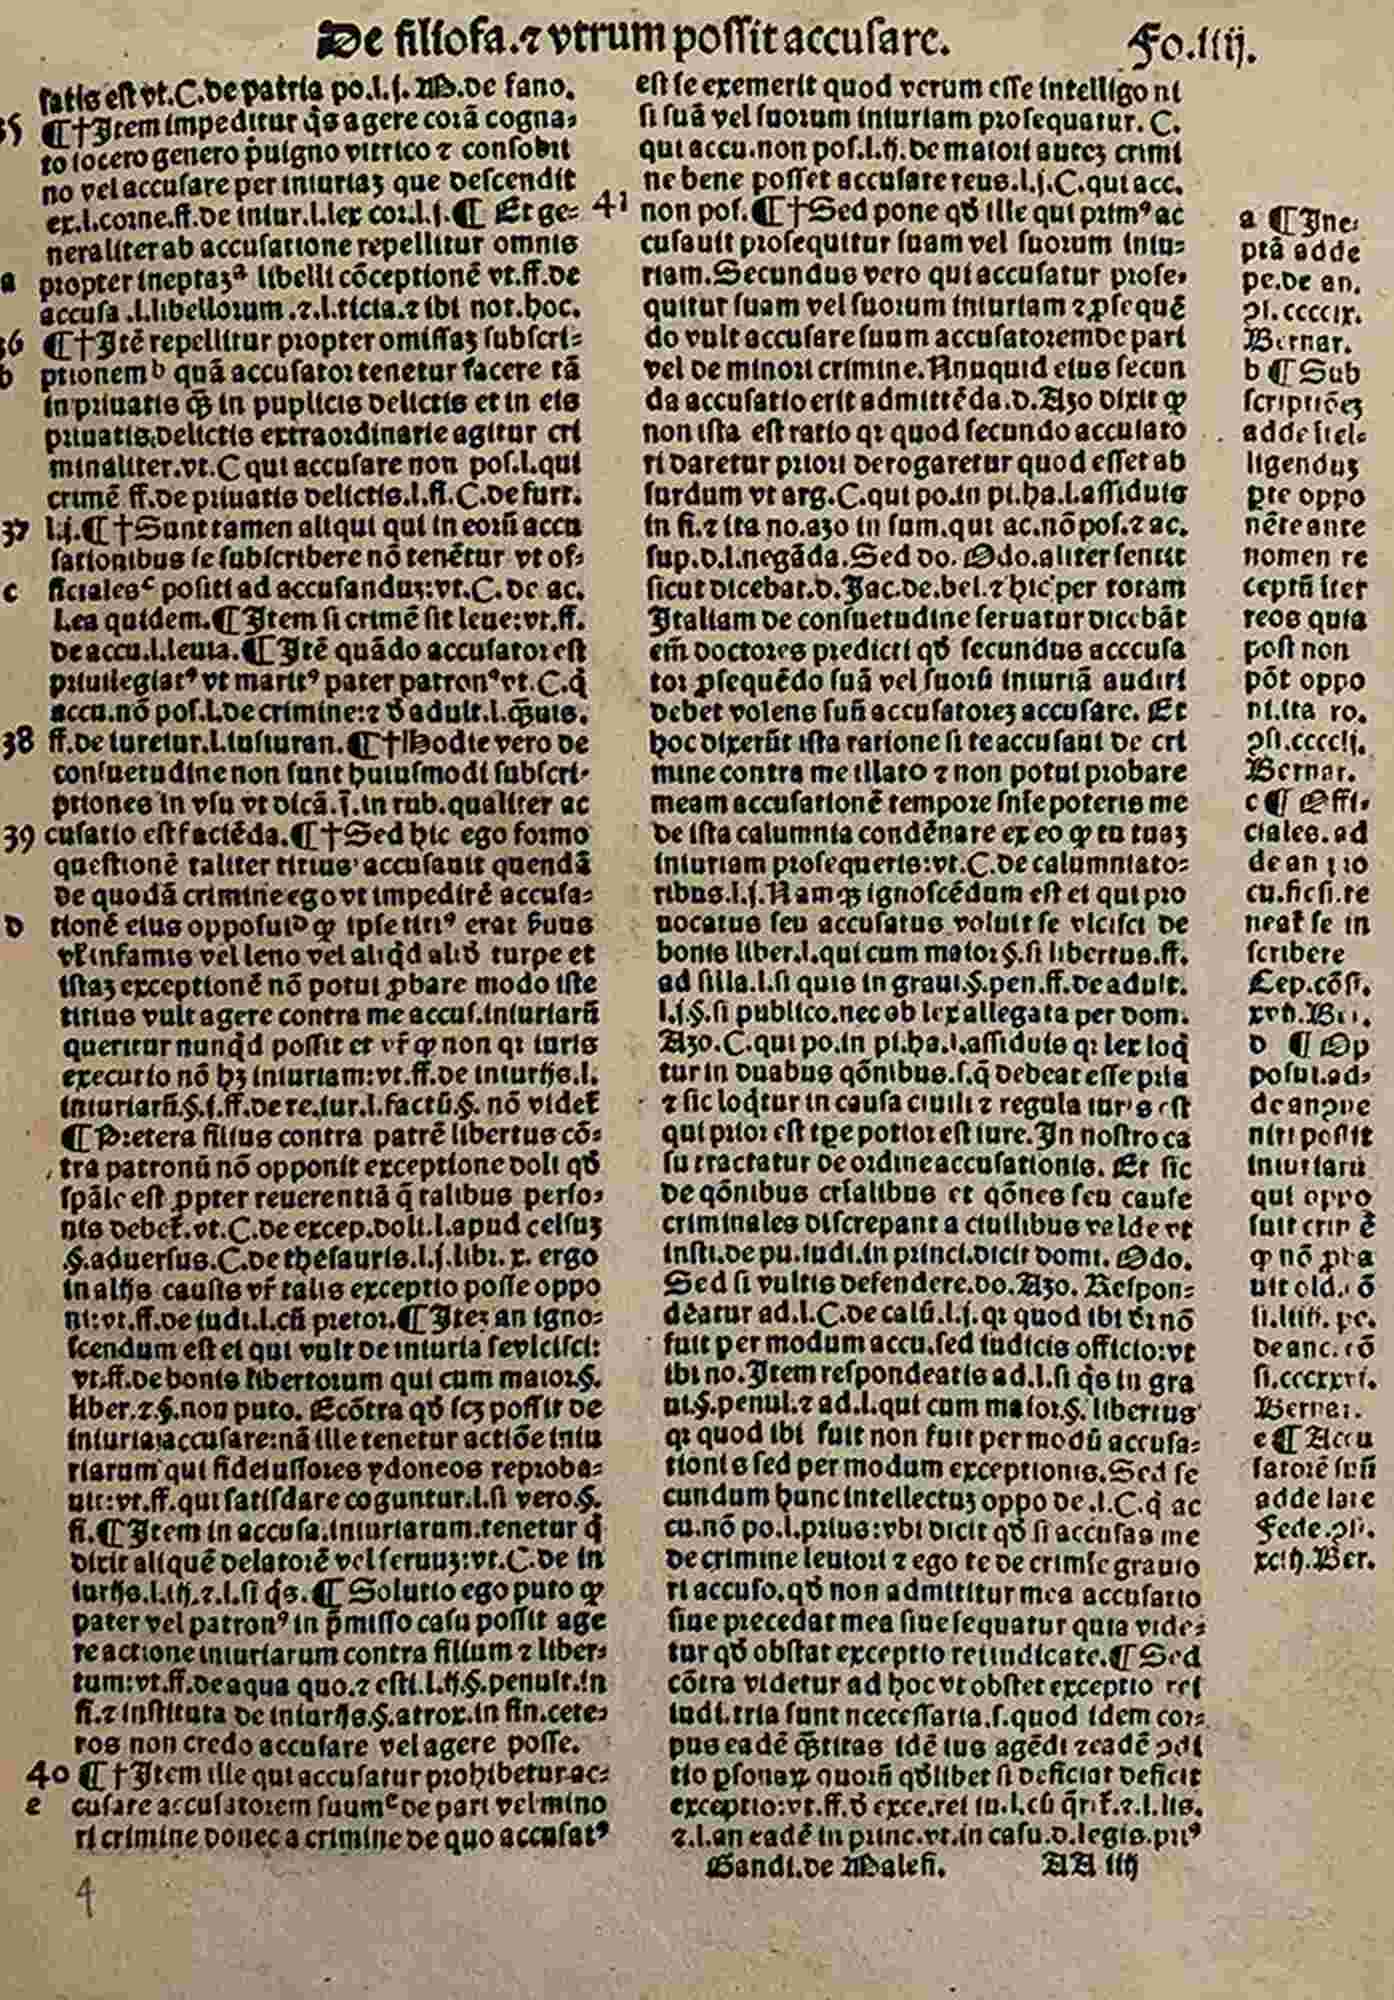 De filiofa.⁊ vtrum possit accusare. Fo.iiij.
satis est vt.C.de patria po.l.j. M.de fano.
35 ¶†Item impeditur q̇s agere corā cogna-
to socero genero p̄uigno vitrico ⁊ consobri
no vel accusare per iniuriaʒ que descendit
ex.l.corne.ff.de iniur.l.lex cor.l.j.¶ Et ge-
neraliter ab accusatione repellitur omnis
a propter ineptaʒᵃ libelli cōceptionē vt.ff.de
accusa.l.libellorum.⁊.l.ticia.⁊ ibi not.hoc.
36 ¶†Itē repellitur propter omissaʒ subscri-
b ptionemᵇ quā accusator tenetur facere tā
in priuatis q̄ȝ in puplicis delictis et in eis
priuatis.delictis extraordinarie agitur cri
minaliter.vt.C qui accusare non pos.l.qui
crimē ff.de priuatis delictis.l.fi.C.de furt.
37 l.j.¶†Sunt tamen aliqui qui in eorū accu
sationibus se subscribere nō tenētur vt of-
c ficialesᶜ positi ad accusanduʒ:vt.C.de ac.
l.ea quidem.¶Item si crimē sit leue:vt.ff.
de accu.l.leuia.¶Itē quādo accusator est
priuilegiatꝰ vt maritꝰ pater patronꝰvt.C.q̇
accu.nō pos.l.de crimine:⁊ đ adult.l.q̄ȝuis.
38 ff.de iureiur.l.iusiuran.¶†Hodie vero de
consuetudine non sunt huiusmodi subscri-
ptiones in vsu vt dicā.j̄.in rub.qualiter ac
39 cusatio est faciēda.¶†Sed hic ego formo
questionē taliter titius accusauit quendā
de quodā crimine ego vt impedirē accusa-
d tionē eius opposuiᵈ ꝙ ipse titiꝰ erat seruus
vel infamis vel leno vel aliq̇d aliđ turpe et
istaʒ exceptionē nō potui ꝓbare modo iste
titius vult agere contra me accus.iniuriarū
queritur nunq̇d possit et vr̄ ꝙ non qr iuris
executio nō hʒ iniuriam:vt.ff.de iniurijs.l.
iniuriarū.§.j.ff.de re.iur.l.factū.§. nō videt̄
¶Pretera filius contra patrē libertus cō-
tra patronū nō opponit exceptione doli qđ
spāle est ꝓpter reuerentiā q̄ talibus perso-
nis debet̄.vt.C.de excep.doli.l.apud celsuʒ
§.aduersus.C.de thesauris.l.j.libr.x. ergo
in alijs causis vr̄ talis exceptio posse oppo
ni:vt.ff.de iudi.l.cū pretor.¶Iteʒ an igno-
scendum est ei qui vult de iniuria se vlcisci:
vt.ff.de bonis libertorum qui cum maior.§.
liber.⁊.§.non puto. Ecōtra qđ scʒ possit de
iniuria accusare:nā ille tenetur actiōe iniu
riarum qui fideiussores ydoneos reproba-
uit:vt.ff.qui satisdare coguntur.l.si vero.§.
fi.¶Item in accusa.iniuriarum.tenetur q̇
dicit aliquē delatorē vel seruuʒ:vt.C.de in
iurijs.l.iij.⁊.l.si q̇s.¶ Solutio ego puto ꝙ
pater vel patronꝰ in p̄misso casu possit age
re actione iniuriarum contra filium ⁊ liber-
tum:vt.ff.de aqua quo.⁊ esti.l.ij.§.penult.in
fi.⁊ instituta de iniurijs.§.atrox.in fin.cete-
ros non credo accusare vel agere posse.
40 ¶†Item ille qui accusatur prohibetur ac-
e cusare accusatorem suumᵉ de pari vel mino
ri crimine donec a crimine de quo accusatꝰ
est se exemerit quod verum esse intelligo ni
si suā vel suorum iniuriam prosequatur. C.
qui accu.non pos.l.ij.de maiori auteʒ crimi
ne bene posset accusare reus.l.j.C.qui acc.
41 non pos.¶†Sed pone qđ ille qui primꝰ ac
cusauit prosequitur suam vel suorum iniu-
riam.Secundus vero qui accusatur prose-
quitur suam vel suorum iniuriam ⁊ ꝓsequē
do vult accusare suum accusatorem de pari
vel de minori crimine.Nnuquid eius secun
da accusatio erit admittēda.d.Azo dixit ꝙ
non ista est ratio qr quod secundo accusato
ri daretur priori derogaretur quod esset ab
surdum vt arg.C.qui po.in pi.ha.l.assiduis
in fi.⁊ ita no.azo in sum.qui ac.nō pos.⁊ ac.
sup.d.l.negāda.Sed do. Odo.aliter sentit
sicut dicebat.d.Jac.de.bel.⁊ hic per totam
Italiam de consuetudine seruatur dicebāt
em̄ doctores predicti qđ secundus acccusa
tor ꝓsequēdo suā vel suorū iniuriā audiri
debet volens suū accusatoreʒ accusare. Et
hoc dixerūt ista ratione si te accusaui de cri
mine contra me illato ⁊ non potui probare
meam accusationē tempore suse poteris me
de ista calumnia condēnare ex eo ꝙ tu tuaʒ
iniuriam prosequeris:vt.C.de calumniato-
ribus.l.j.Namqʒ ignoscēdum est ei qui pro
uocatus seu accusatus voluit se vlcisci de
bonis liber.l.qui cum maior §.si libertus.ff.
ad silla.l.si quis in graui.§.pen.ff.de adult.
l.j.§.si publico.nec ob lex allegata per dom.
Azo.C.qui po.in pi.ha.l.assiduis qr lex loq̇
tur in duabus qōnibus.s.q̄ debeat esse pria
⁊ sic loq̇tur in causa ciuili ⁊ regula iuris est
qui prior est tp̄e potior est iure.In nostro ca
su tractatur de ordine accusationis. Et sic
de qōnibus crīalibus et qōnes seu cause
criminales discrepant a ciuilibus velde vt
insti.de pu.iudi.in princi.dicit domi. Odo.
Sed si vultis defendere.do.Azo. Respon-
deatur ad.l.C.de calū.l.j.qr quod ibi d̄r nō
fuit per modum accu.sed iudicis officio:vt
ibi no.Item respondeatis ad.l.si q̇s in gra
ui.§.penul.⁊ ad.l.qui cum maior.§. libertus
qr quod ibi fuit non fuit per modū accusa-
tionis sed per modum exceptionis.Sed se
cundum hunc intellectuʒ oppo de.l.C.q̇ ac
cu.nō po.l.prius:vbi dicit qđ si accusas me
de crimine leuiori ⁊ ego te de crimīe grauio
ri accuso.qđ non admittitur mea accusatio
siue precedat mea siue sequatur quia vide-
tur qđ obstat exceptio rei iudicate.¶Sed
cōtra videtur ad hoc vt obstet exceptio rei
iudi.tria sunt nceccessaria.s.quod idem cor-
pus eadē q̄ȝtitas idē ius agēdi ⁊eadē ↄdi
tio ꝑsonaꝝ quorū qđlibet si deficiat deficit
exceptio:vt.ff.đ exce.rei iu.l.cū q̄rit̄.⁊.l.lis.
⁊.l.an eadē in princ.vt.in casu.d.legis.priꝰ
Gandi.de Malefi. AA iiij
a ¶Ine-
ptā adde
pe.de an.
ↄsi.cccccix.
Bernar.
b ¶Sub
scriptiōeʒ
adde itel-
ligenduʒ
ꝑte oppo
nēte ante
nomen re
ceptū iter
reos quia
post non
pōt oppo
ni.ita ro.
ↄsi.ccccclj.
Bernar.
c ¶ Offi-
ciales.ad
de an ↄ ro
cu.fic si.te
neat̄ se in
scribere
Lep.cōsi.
xvij.Ber.
d ¶ Op
posui.ad-
de an ↄue
niri possit
iniuriarū
qui oppo
suit crim ē
ꝙ nō ꝓba
uit old. cō
si.liiij. pe.
de anc. cō
si.cccxxvi.
Bernar.
e ¶ Accu
satorē suū
adde late
Fede.ↄsi.
xciij.Ber.
4